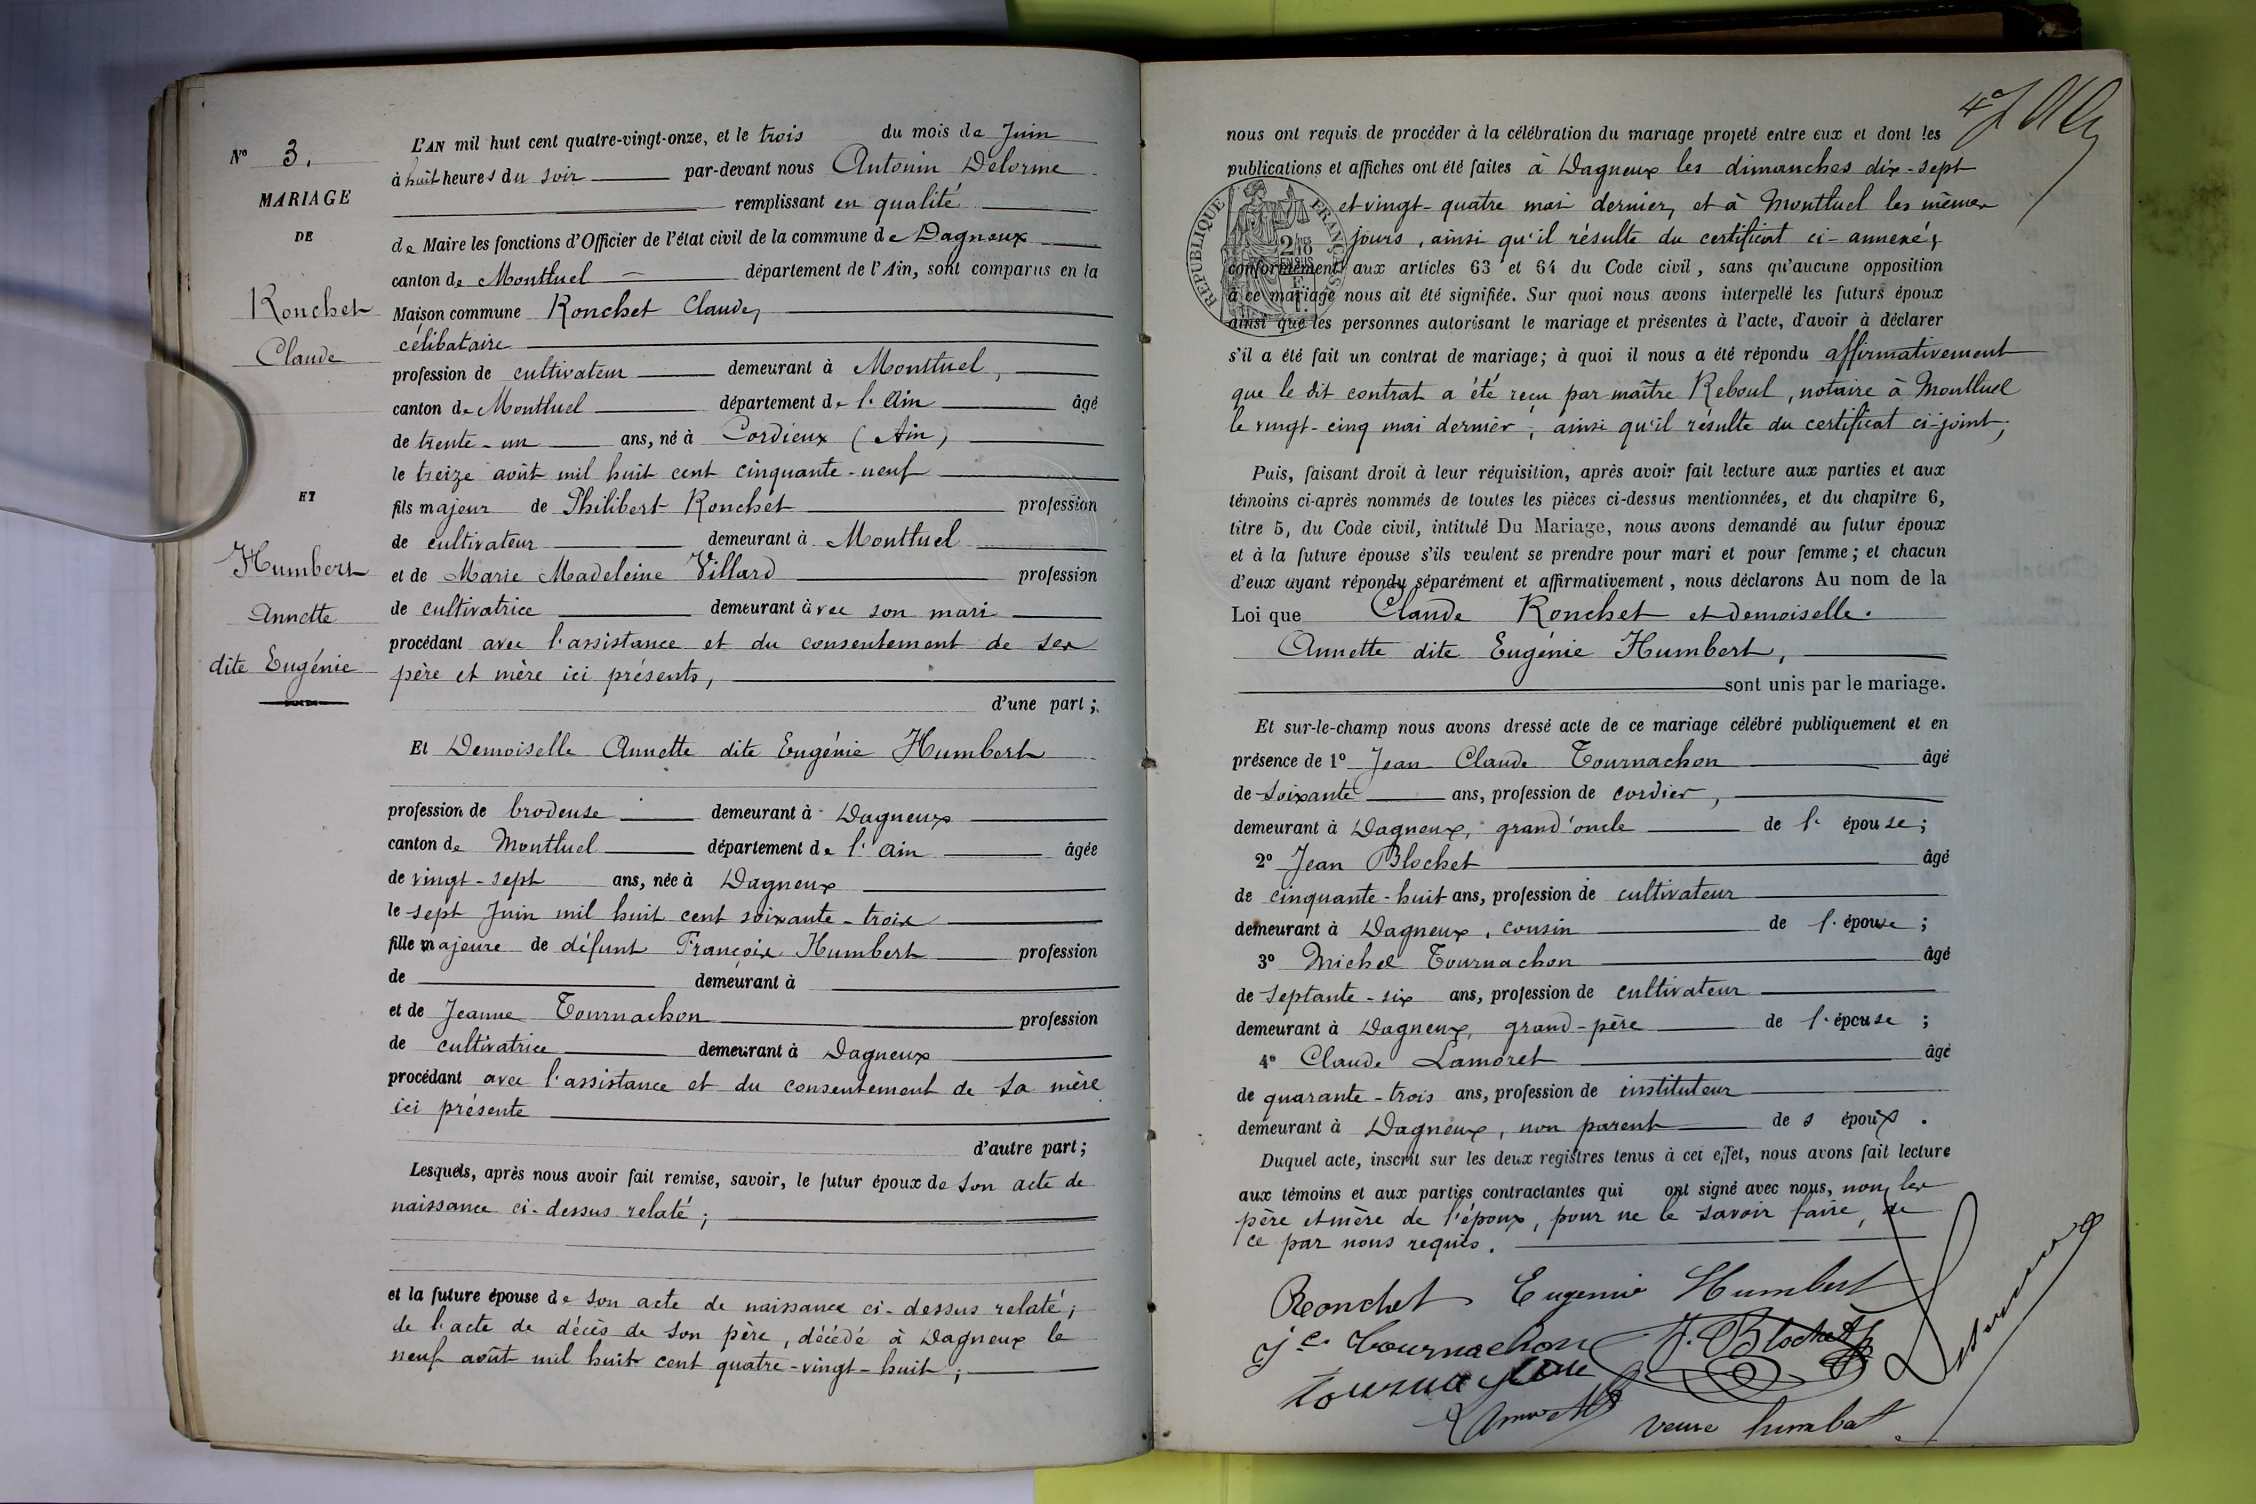 N° 3.
MARIAGE
DE
Ronchet
Claude
ET
Humbert
Annette
dite Eugénie
L'AN mil huit cent quatre-vingt-onze, et le trois du mois de Juin
à huit heures du soir par-devant nous Antonin Delorme
remplissant en qualité
de Maire les fonctions d'Officier de l'état civil de la commune de Dagneux
canton de Montluel département de l'Ain, sont comparus en la
Maison commune Ronchet Claude,
célibataire
profession de cultivateur demeurant à Montluel,
canton de Montluel département de l'Ain âgé
de trente-un ans, né à Cordieux (Ain)
le treize août mil huit cent cinquante-neuf
fils majeur de Philibert Ronchet profession
de cultivateur demeurant à Montluel
et de Marie Madeleine Villard profession
de cultivatrice demeurant avec son mari
procédant avec l'assistance et du consentement de ses
père et mère ici présents,
d'une part;
Et Demoiselle Annette dite Eugénie Humbert
profession de brodeuse demeurant à Dagneux
canton de Montluel département de l'Ain âgée
de vingt-sept ans, née à Dagneux
le sept Juin mil huit cent soixante-trois
fille majeure de défunt François Humbert profession
de demeurant à
et de Jeanne Tournachon profession
de cultivatrice demeurant à Dagneux
procédant avec l'assistance et du consentement de sa mère
ici présente
d'autre part;
Lesquels, après nous avoir fait remise, savoir, le futur époux de son acte de
naissance ci-dessus relaté;
et la future épouse de son acte de naissance ci-dessus relaté;
de l'acte de décès de son père, décédé à Dagneux le
neuf août mil huit cent quatre-vingt-huit;
nous ont requis de procéder à la célébration du mariage projeté entre eux et dont les
publications et affiches ont été faites à Dagneux les dimanches dix-sept
et vingt-quatre mai dernier, et à Montluel les mêmes
jours, ainsi qu'il résulte du certificat ci-annexé,
conformément aux articles 63 et 64 du Code civil, sans qu'aucune opposition
à ce mariage nous ait été signifiée. Sur quoi nous avons interpellé les futurs époux
ainsi que les personnes autorisant le mariage et présentes à l'acte, d'avoir à déclarer
s'il a été fait un contrat de mariage; à quoi il nous a été répondu affirmativement
que le dit contrat a été reçu par maître Reboul, notaire à Montluel
le vingt-cinq mai dernier, ainsi qu'il résulte du certificat ci-joint;
RÉPUBLIQUE FRANÇAISE
Puis, faisant droit à leur réquisition, après avoir fait lecture aux parties et aux
témoins ci-après nommés de toutes les pièces ci-dessus mentionnées, et du chapitre 6,
titre 5, du Code civil, intitulé Du Mariage, nous avons demandé au futur époux
et à la future épouse s'ils veulent se prendre pour mari et pour femme; et chacun
d'eux ayant répondu séparément et affirmativement, nous déclarons Au nom de la
Loi que Claude Ronchet et demoiselle.
Annette dite Eugénie Humbert,
sont unis par le mariage.
Et sur-le-champ nous avons dressé acte de ce mariage célébré publiquement et en
présence de 1° Jean Claude Tournachon âgé
de soixante ans, profession de cordier,
demeurant à Dagneux, grand'oncle de l'épouse;
2° Jean Blochet âgé
de cinquante-huit ans, profession de cultivateur
demeurant à Dagneux, cousin de l'épouse;
3° Michel Tournachon âgé
de septante-six ans, profession de cultivateur
demeurant à Dagneux, grand-père de l'épouse;
4° Claude Lamoret âgé
de quarante-trois ans, profession de instituteur
demeurant à Dagneux, non parent des époux.
Duquel acte, inscrit sur les deux registres tenus à cet effet, nous avons fait lecture
aux témoins et aux parties contractantes qui ont signé avec nous, non les
père et mère de l'époux, pour ne le savoir faire, de
ce par nous requis.
Ronchet Eugenie Humbert
J C. Tournachon J. Blochet
tournachon
veuve humbert